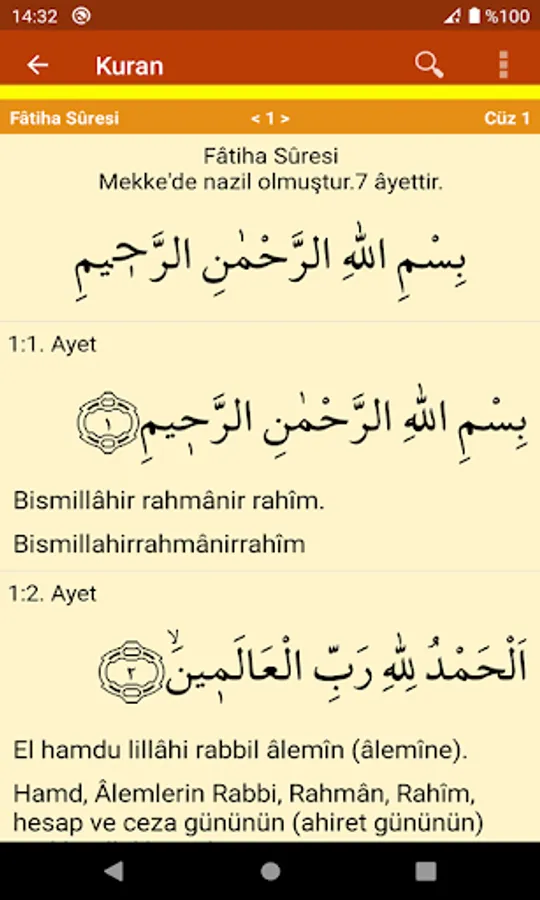 14:32 %100
Kuran
Fâtiha Sûresi < 1 > Cüz 1
Fâtiha Sûresi
Mekke'de nazil olmuştur.7 âyettir.
بِسْمِ اللهِ الرَّحْمٰنِ الرَّح۪يمِ
1:1. Ayet
بِسْمِ اللهِ الرَّحْمٰنِ الرَّح۪يمِ ١
Bismillâhir rahmânir rahîm.
Bismillahirrahmânirrahîm
1:2. Ayet
اَلْحَمْدُ لِلهِ رَبِّ الْعَالَم۪ينَۙ ٢
El hamdu lillâhi rabbil âlemîn (âlemîne).
Hamd, Âlemlerin Rabbi, Rahmân, Rahîm,
hesap ve ceza gününün (ahiret gününün)